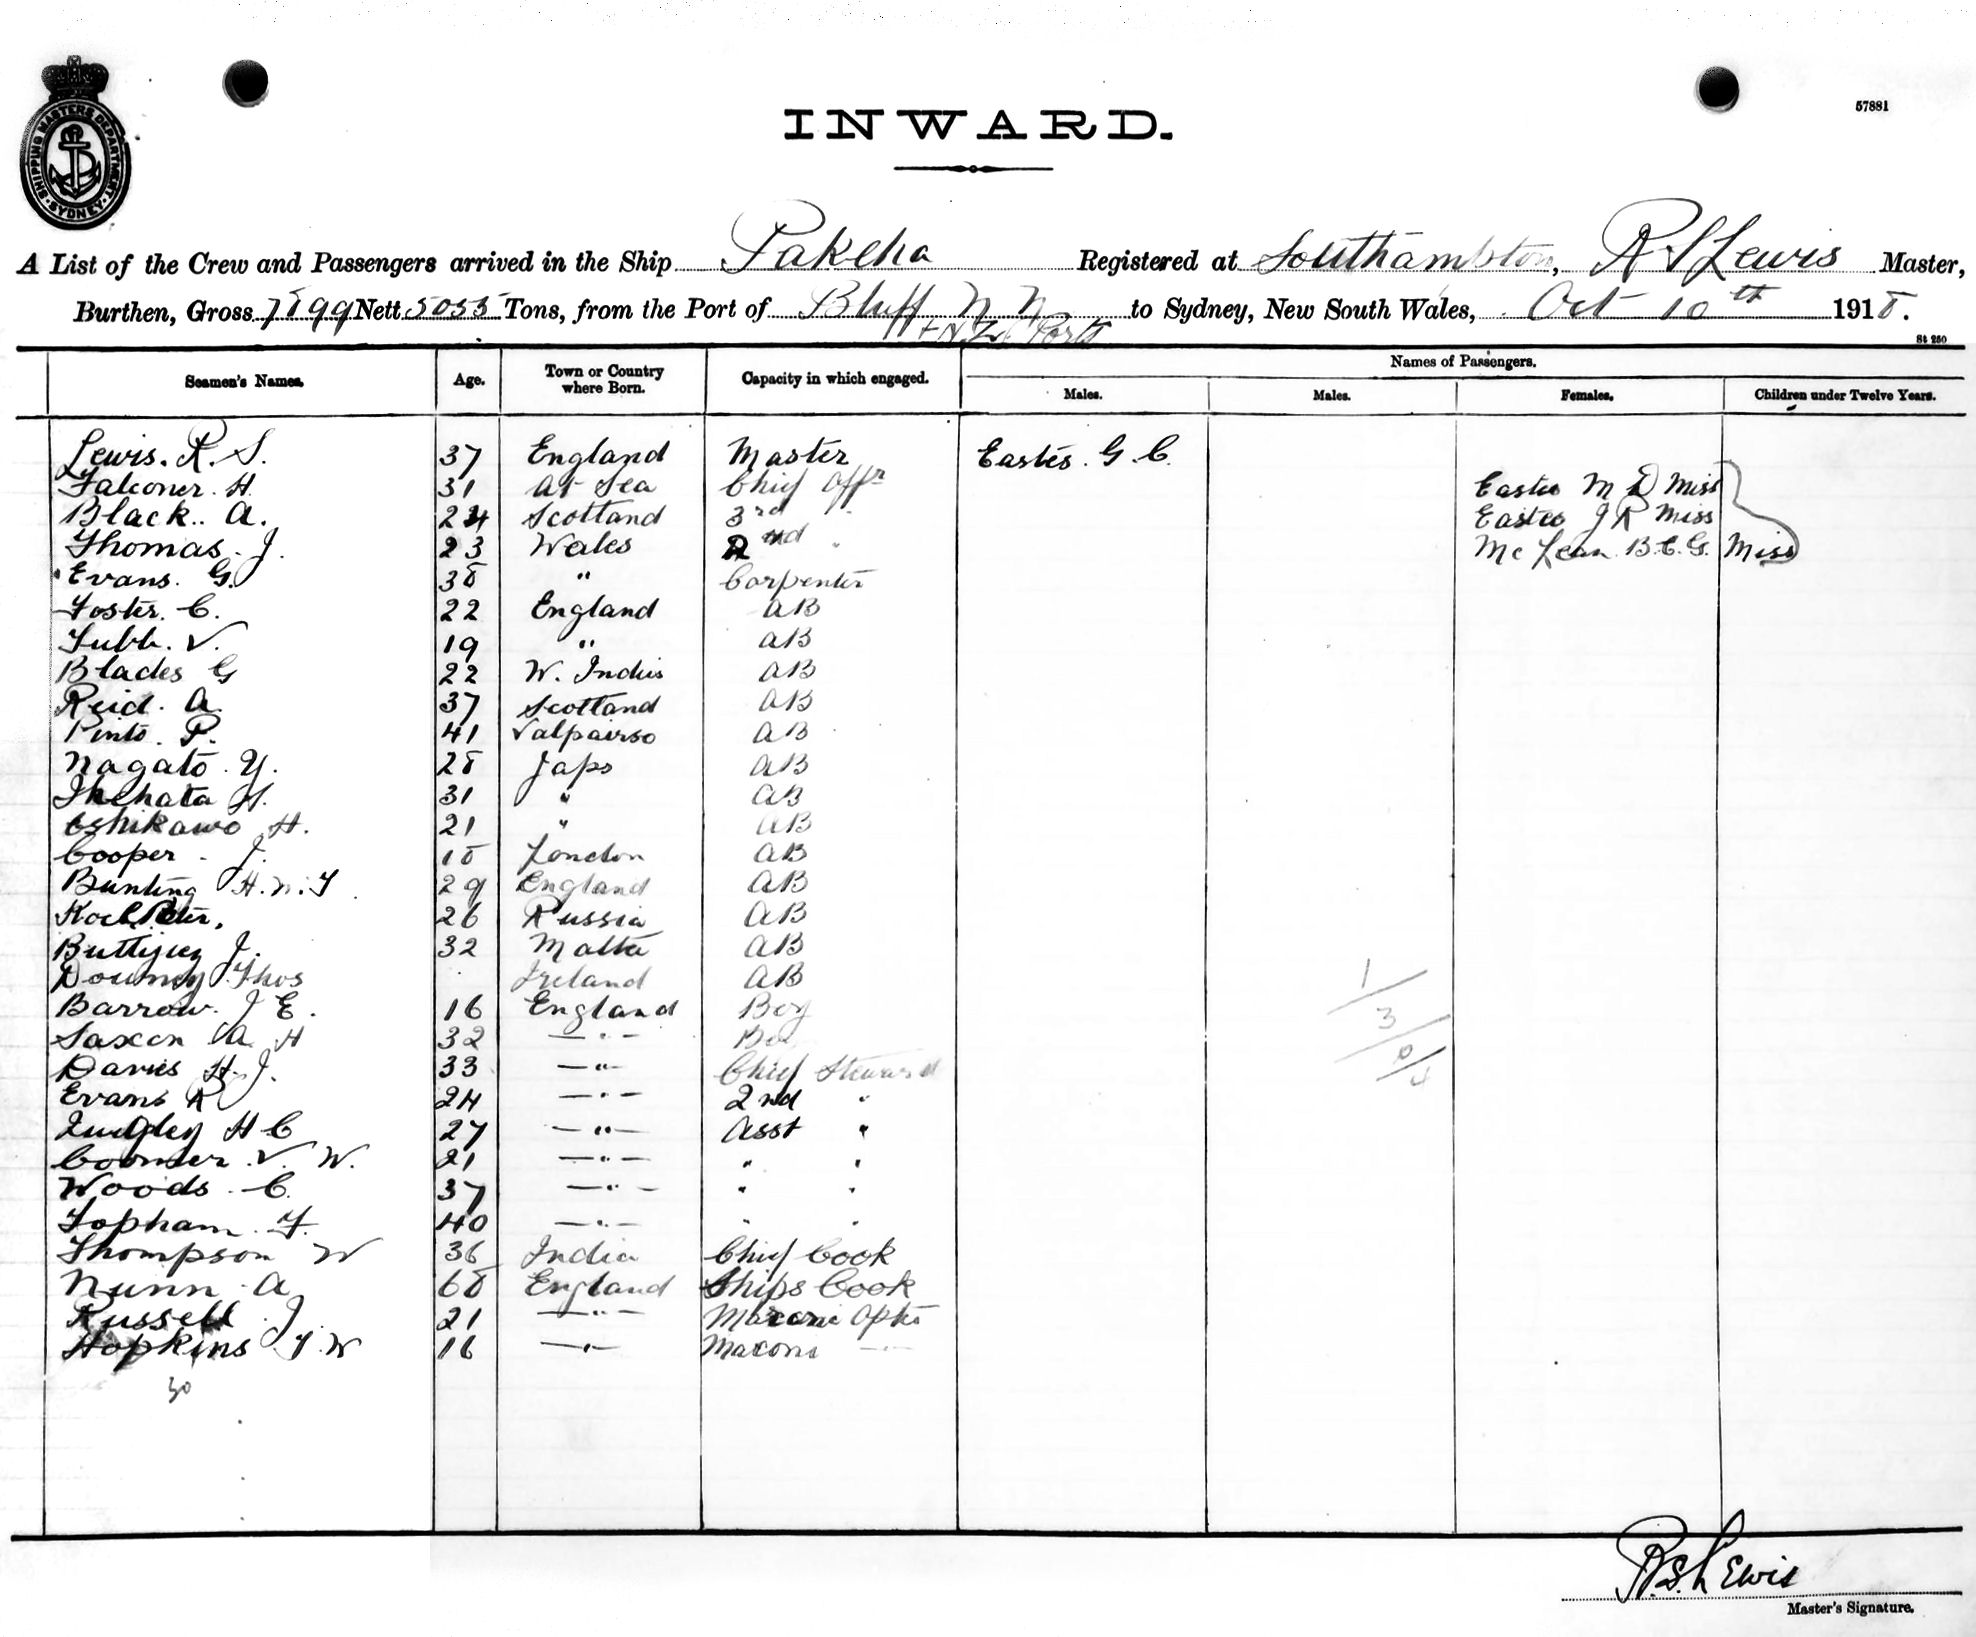 57881
SHIPPING MASTERS DEPARTMENT
SYDNEY
INWARD.
A List of the Crew and Passengers arrived in the Ship Pakeha Registered at Southampton, R S Lewis Master,
Burthen, Gross 7899 Nett 5035 Tons, from the Port of Bluff to Sydney, New South Wales, Oct 10th 1918.
+ N.Z. Ports
St 250
Seamen's Names. Age. Town or Country where Born. Capacity in which engaged. Names of Passengers.
Males. Males. Females. Children under Twelve Years.
Lewis. R. S. 37 England Master Eastes. G. C.
Falconer. H. 31 at Sea Chief Offr Eastes M D Miss
Black. A. 24 Scotland 3rd " Eastes J R Miss
Thomas. J. 23 Wales 2nd " Mc Lean B.C.G. Miss
Evans. G. 38 " Carpenter
Foster. C. 22 England AB
Tubb. V. 19 " AB
Blades G 22 W. Indies AB
Reid. A. 37 Scotland AB
Pinto. P. 41 Valpairso AB
Nagato. Y. 28 Japs AB
Ikehata 31 " AB
H. 21 " AB
Cooper. J. 18 London AB
Bunting H. W. T. 29 England AB
Peter. 26 Russia AB
Buttijieg J. 32 Malta AB
Downey Thos Ireland AB
Barrow. J E. 16 England Boy
Saxon A H 32 — " — Do
Davies H. J. 33 — " — Chief Steward
Evans R 24 — " — 2nd "
H C 27 — " — Asst "
V. W. 21 — " — " "
Woods. C. 37 — " — " "
Topham. F. 40 — " — " "
Thompson W 36 India Chief Cook
Nunn. A 68 England Ships Cook
Russell. J. 21 — " — Marconi Optr
Hopkins T. W 16 — " — Maconi — " —
30
1/
3/
0/
4
R.S. Lewis
Master's Signature.